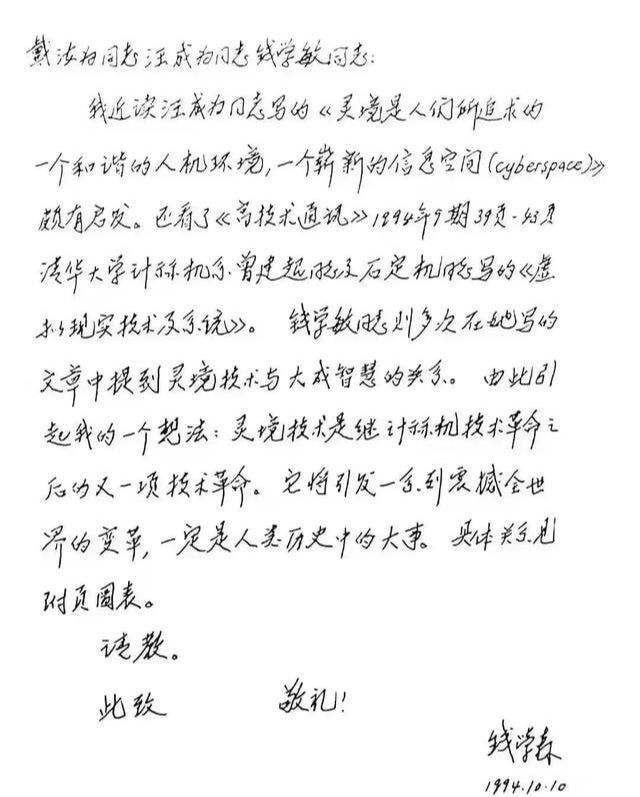 戴汝为同志汪成为同志钱学敏同志:
我近读汪成为同志写的《灵境是人们所追求的
一个和谐的人机环境,一个崭新的信息空间(cyberspace)》
颇有启发。还看了《高技术通讯》1994年9期39页-43页
清华大学计算机系曾建超同志及石定机同志写的《虚
拟现实技术及系统》。 钱学敏同志则多次在她写的
文章中提到灵境技术与大成智慧的关系。由此引
起我的一个想法:灵境技术是继计算机技术革命之
后的又一项技术革命。它将引发一系列震撼全世
界的变革,一定是人类历史中的大事。具体关系见
附页圖表。
请教。
此致 敬礼!
钱学森
1994.10.10